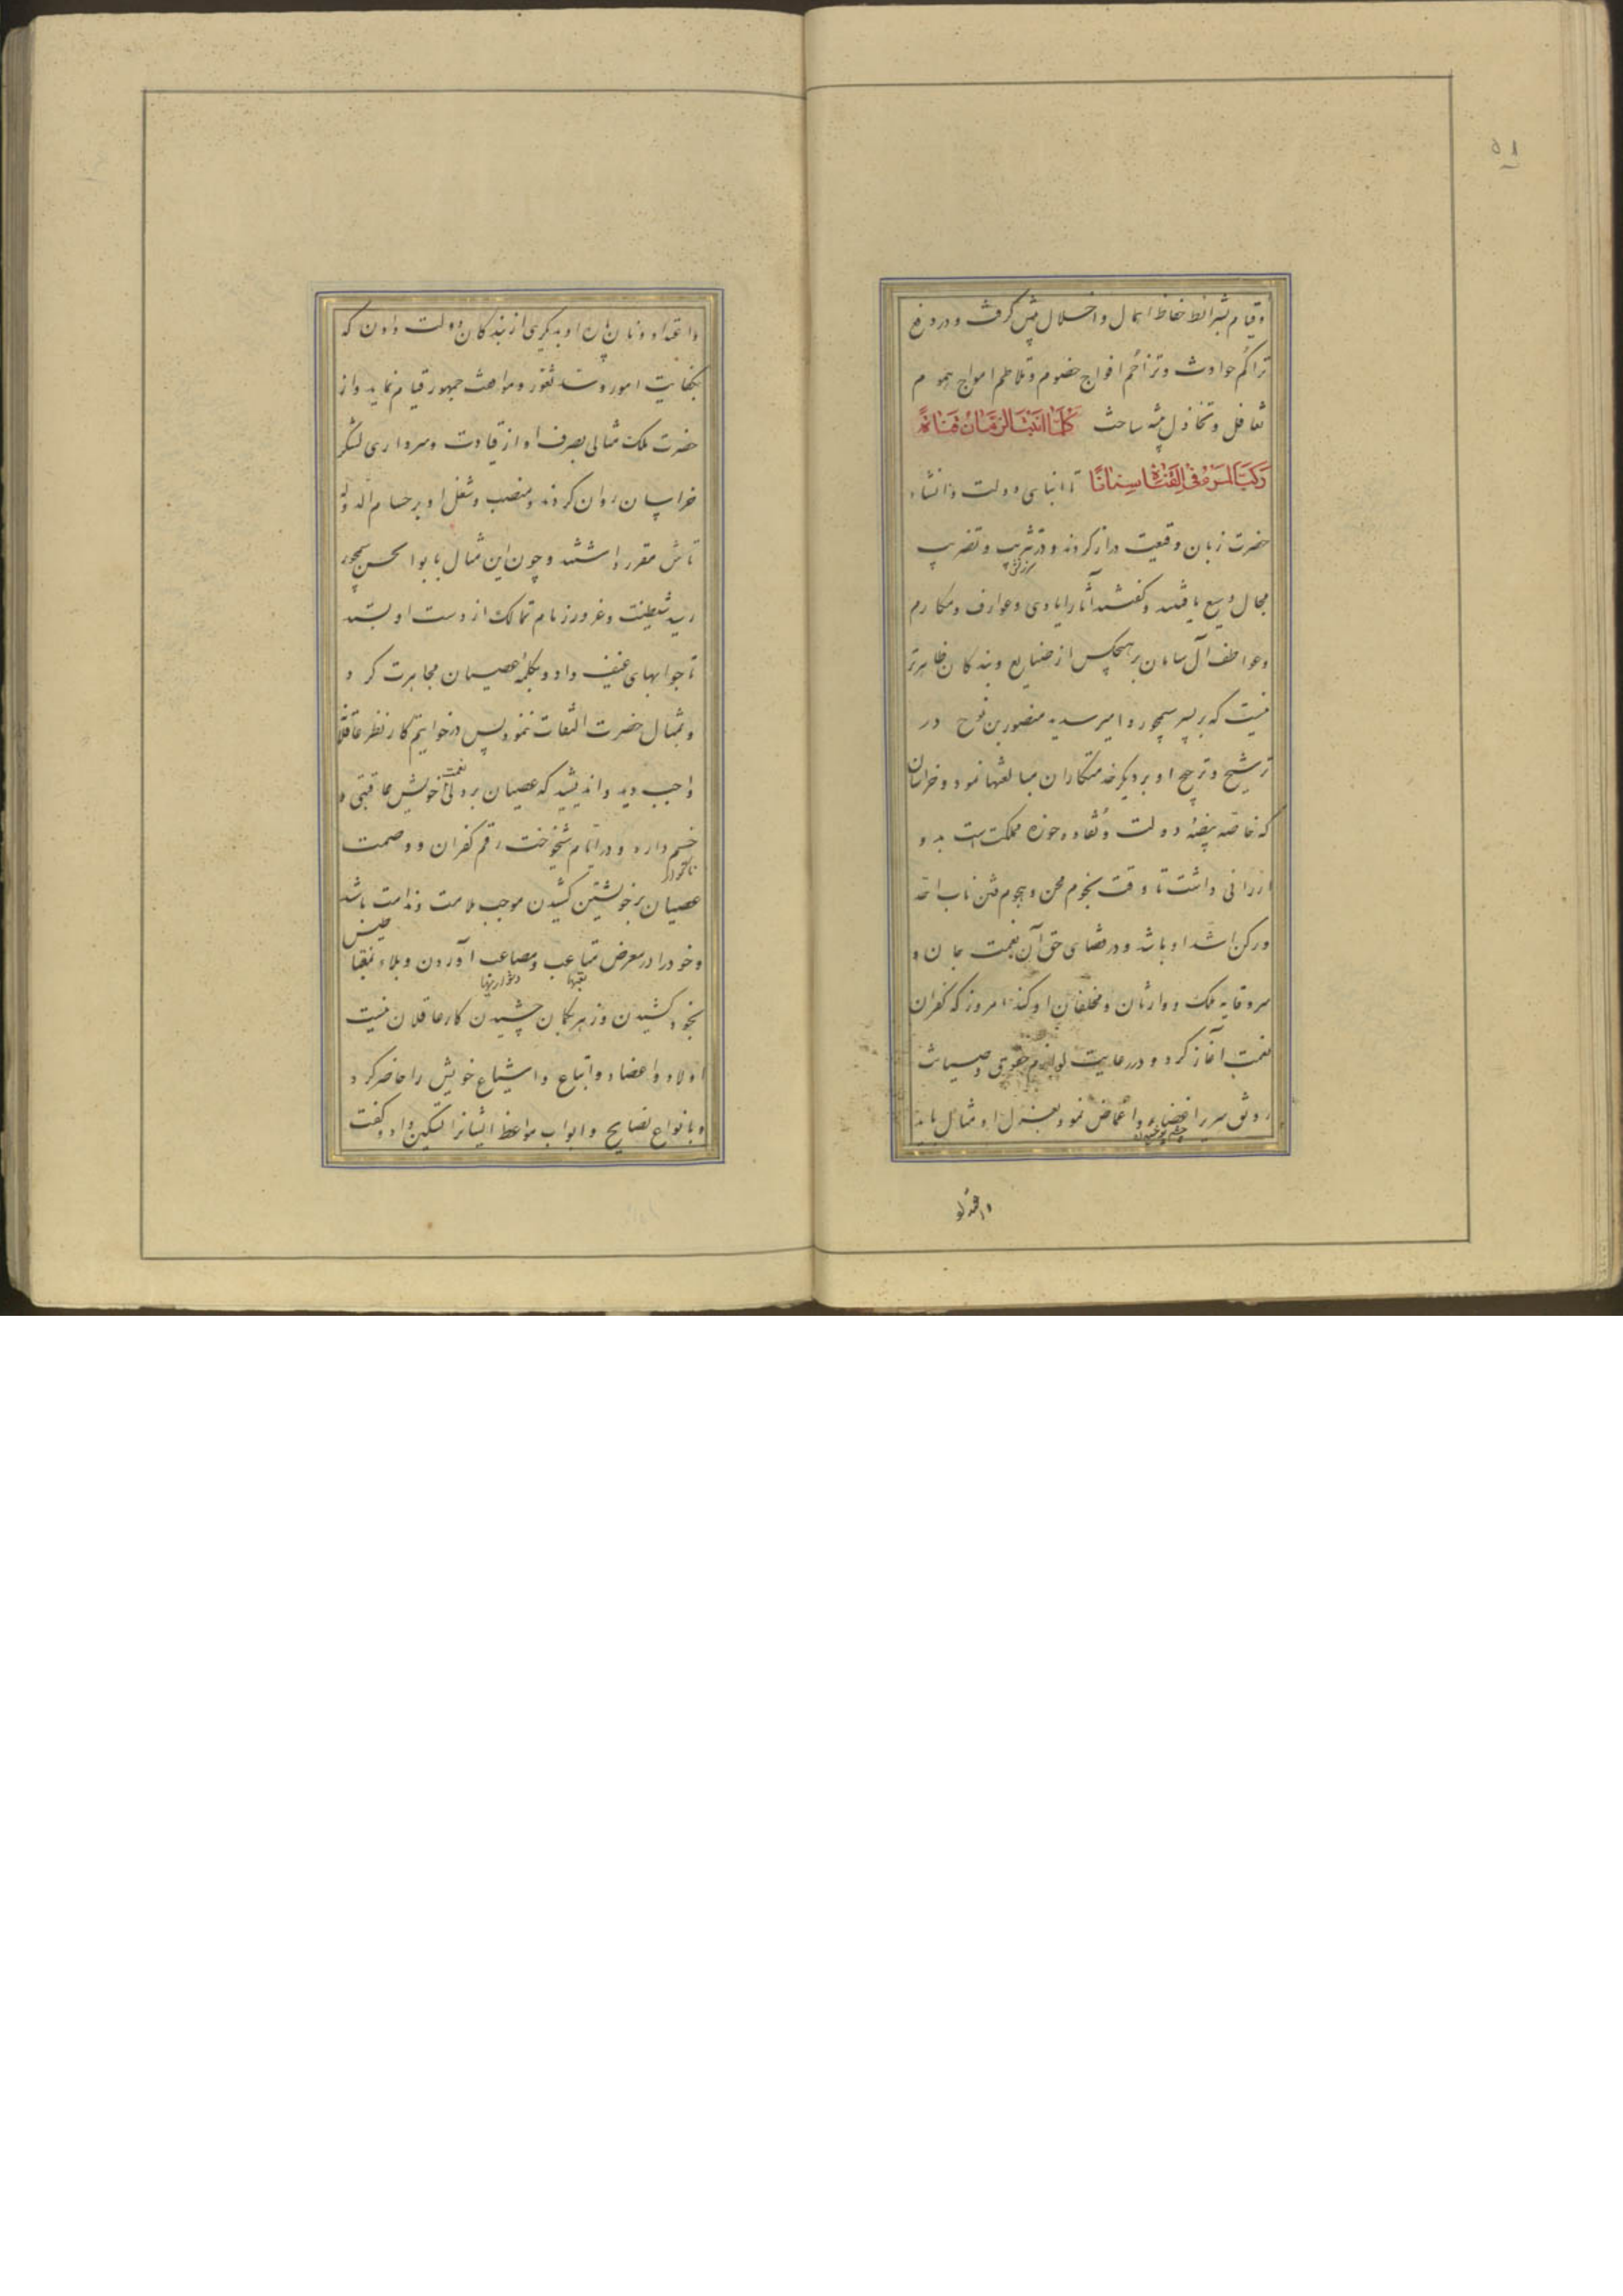 ۵۱
وقیام بشرائط حفاظ اهمال و اخلال پیش گرفت و در دفع
تراکم حوادث و تزاحم افواج خصوم و تلاطم امواج هموم
تغافل و تخاذل پیشه ساخت كُلَّمَا اَنْبَتَ الزَّمَانُ قَنَاةً
رَكَّبَ الْمَرْءُ فِی الْقَنَاةِ سِنَانًا تا ابنای دولت و انشاء
حضرت زبان وقیعت دراز کردند و در تثریب و تضریب
سرزنش
مجال وسیع یافتند و گفتند آثار ایادی و عوارف و مکارم
وعواطف آل سامان بر هیچکس از صنایع و بندکان ظاهرتر
نیست که بر پسر سیمجور و امیر سدید منصور بن نوح در
ترشیح و ترجیح او بر دیگر خدمتکاران مبالغتها نمود و خراسان
که خاصه بیضه دولت و نقاوه حوزه مملکت است بدو
ارزانی داشت تا وقت نجوم محن و هجوم فتن ناب احد
و رکن اشد او باشد و در قضای حق آن نعمت جان و
سر وقایه ملک و وارثان و مخلفان او کند امروز که کفران
نعمت آغاز کرد و در رعایت لوازم حقوق و صیانت
رونق سریر اغضاء و اغماض نمود بعزل او مثال باید
چشم پوشیدن
داد و نان پاره او بدیکری از بندکان دولت دادن که
بکفایت امور و سد ثغور و مواهت جمهور قیام نماید و از
حضرت ملک مثالی بصرف او از قیادت و سرداری لشکر
خراسان روان کردند و منصب و شغل او بر حسام الدوله
تاش مقرر داشتند و چون این مثال بابوالحسن سیمجور
رسید شیطنت و غرور زمام تمالک از دست او بستد
تا جوابهای عنیف داد و بکلمه عصیان مجاهرت کرد
و بمثال حضرت التفات ننمود پس در خواتیم کار نظر عاقلانه
واجب دید و اندیشید که عصیان بر ولی نعمت خویش عاقبتی و
خیم دارد و در ایام شیخوخت رقم کفران و وصمت
ناگوار
عصیان بر خویشتن کشیدن موجب ملامت و ندامت باشد
و خود را در معرض متاعب و مصاعب آوردن و بلاء نقبا
تعبها دشواریها
بخود کشیدن و زهر بکمان چشیدن کار عاقلان نیست
اولاد و اعضاد و اتباع و اشیاع خویش را حاضر کرد
و بانواع نصایح و ابواب مواعظ ایشانرا تسکین داد و گفت